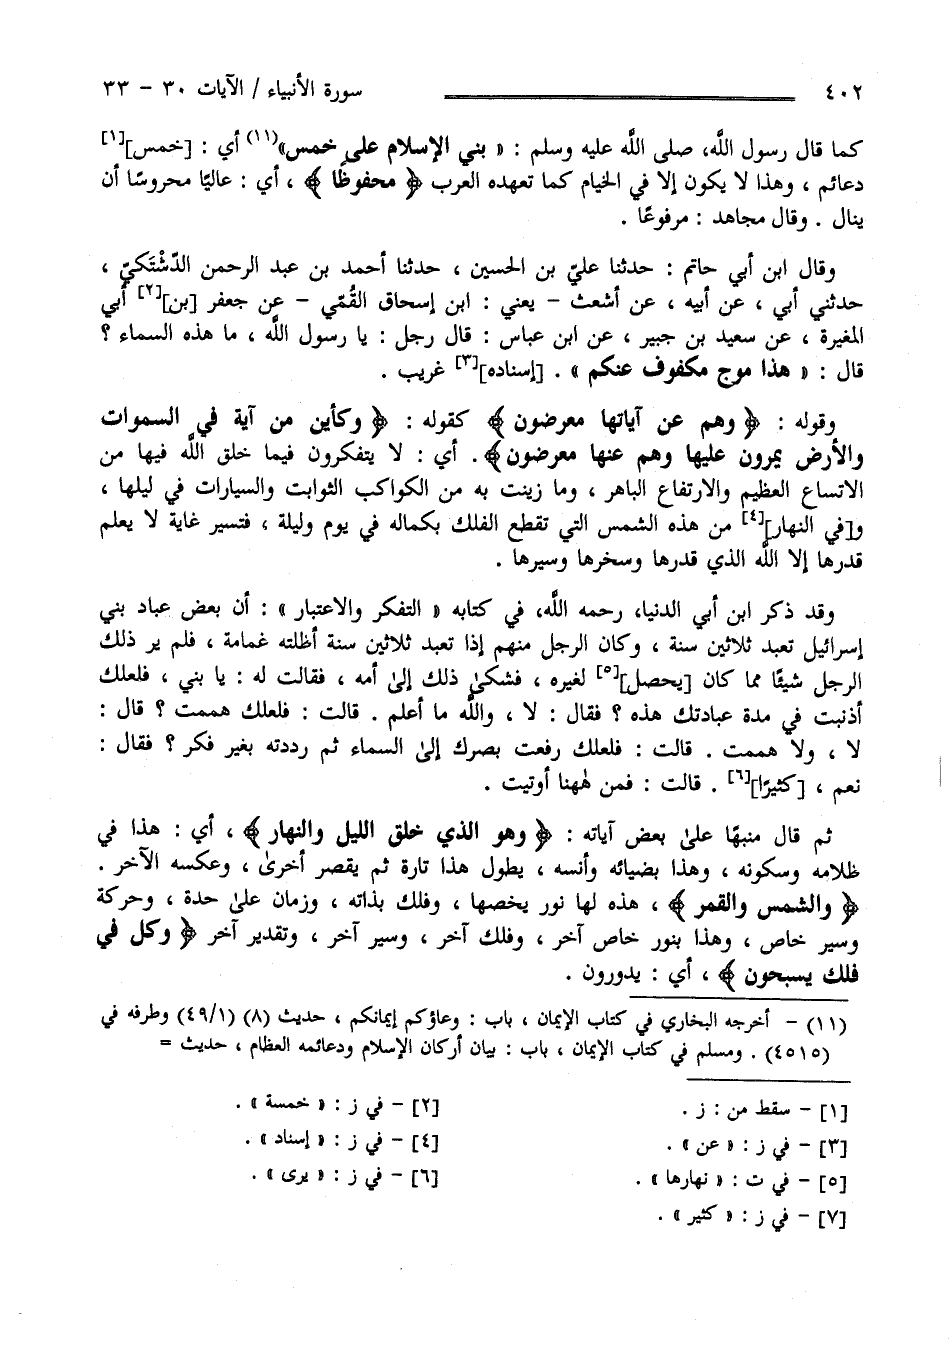 ٤٠٢ سورة الأنبياء / الآيات ٣٠ - ٣٣
كما قال رسول اللَّه، صلى اللَّه عليه وسلم : « بني الإسلام على خمس»(١١) أي : [خمس][١]
دعائم ، وهذا لا يكون إلا في الخيام كما تعهده العرب ﴿ محفوظًا ﴾ ، أي : عاليًا محروسًا أن
ينال . وقال مجاهد : مرفوعًا .
وقال ابن أبي حاتم : حدثنا عليّ بن الحسين ، حدثنا أحمد بن عبد الرحمن الدّشْتَكيّ ،
حدثني أبي ، عن أبيه ، عن أشعث - يعني : ابن إسحاق القُمّي - عن جعفر [بن][٢] أبي
المغيرة ، عن سعيد بن جبير ، عن ابن عباس : قال رجل : يا رسول اللَّه ، ما هذه السماء ؟
قال : « هذا موج مكفوف عنكم » . [إسناده][٣] غريب .
وقوله : ﴿ وهم عن آياتها معرضون ﴾ كقوله : ﴿ وكأين من آية في السموات
والأرض يمرون عليها وهم عنها معرضون﴾ . أي : لا يتفكرون فيما خلق اللَّه فيها من
الاتساع العظيم والارتفاع الباهر ، وما زينت به من الكواكب الثوابت والسيارات في ليلها ،
و[في النهار][٤] من هذه الشمس التي تقطع الفلك بكماله في يوم وليلة ، فتسير غاية لا يعلم
قدرها إلا اللَّه الذي قدرها وسخرها وسيرها .
وقد ذكر ابن أبي الدنيا، رحمه اللَّه، في كتابه « التفكر والاعتبار » : أن بعض عباد بني
إسرائيل تعبد ثلاثين سنة ، وكان الرجل منهم إذا تعبد ثلاثين سنة أظلته غمامة ، فلم ير ذلك
الرجل شيئًا مما كان [يحصل][٥] لغيره ، فشكىٰ ذلك إلىٰ أمه ، فقالت له : يا بني ، فلعلك
أذنبت في مدة عبادتك هذه ؟ فقال : لا ، واللَّه ما أعلم . قالت : فلعلك هممت ؟ قال :
لا ، ولا هممت . قالت : فلعلك رفعت بصرك إلىٰ السماء ثم رددته بغير فكر ؟ فقال :
نعم ، [كثيرًا][٦] . قالت : فمن هٰهنا أوتيت .
ثم قال منبهًا علىٰ بعض آياته : ﴿ وهو الذي خلق الليل والنهار ﴾ ، أي : هذا في
ظلامه وسكونه ، وهذا بضيائه وأنسه ، يطول هذا تارة ثم يقصر أخرىٰ ، وعكسه الآخر .
﴿ والشمس والقمر ﴾ ، هذه لها نور يخصها ، وفلك بذاته ، وزمان علىٰ حدة ، وحركة
وسير خاص ، وهذا بنور خاص آخر ، وفلك آخر ، وسير آخر ، وتقدير آخر ﴿ وكل في
فلك يسبحون ﴾ ، أي : يدورون .
(١١) - أخرجه البخاري في كتاب الإيمان ، باب : وعاؤكم إيمانكم ، حديث (٨) (٤٩/١) وطرفه في
(٤٥١٥) . ومسلم في كتاب الإيمان ، باب : بيان أركان الإسلام ودعائمه العظام ، حديث =
[١] - سقط من : ز . [٢] - في ز : « خمسة » .
[٣] - في ز : « عن » . [٤] - في ز : « إسناد » .
[٥] - في ت : « نهارها » . [٦] - في ز : « يرى » .
[٧] - في ز : « كثير » .